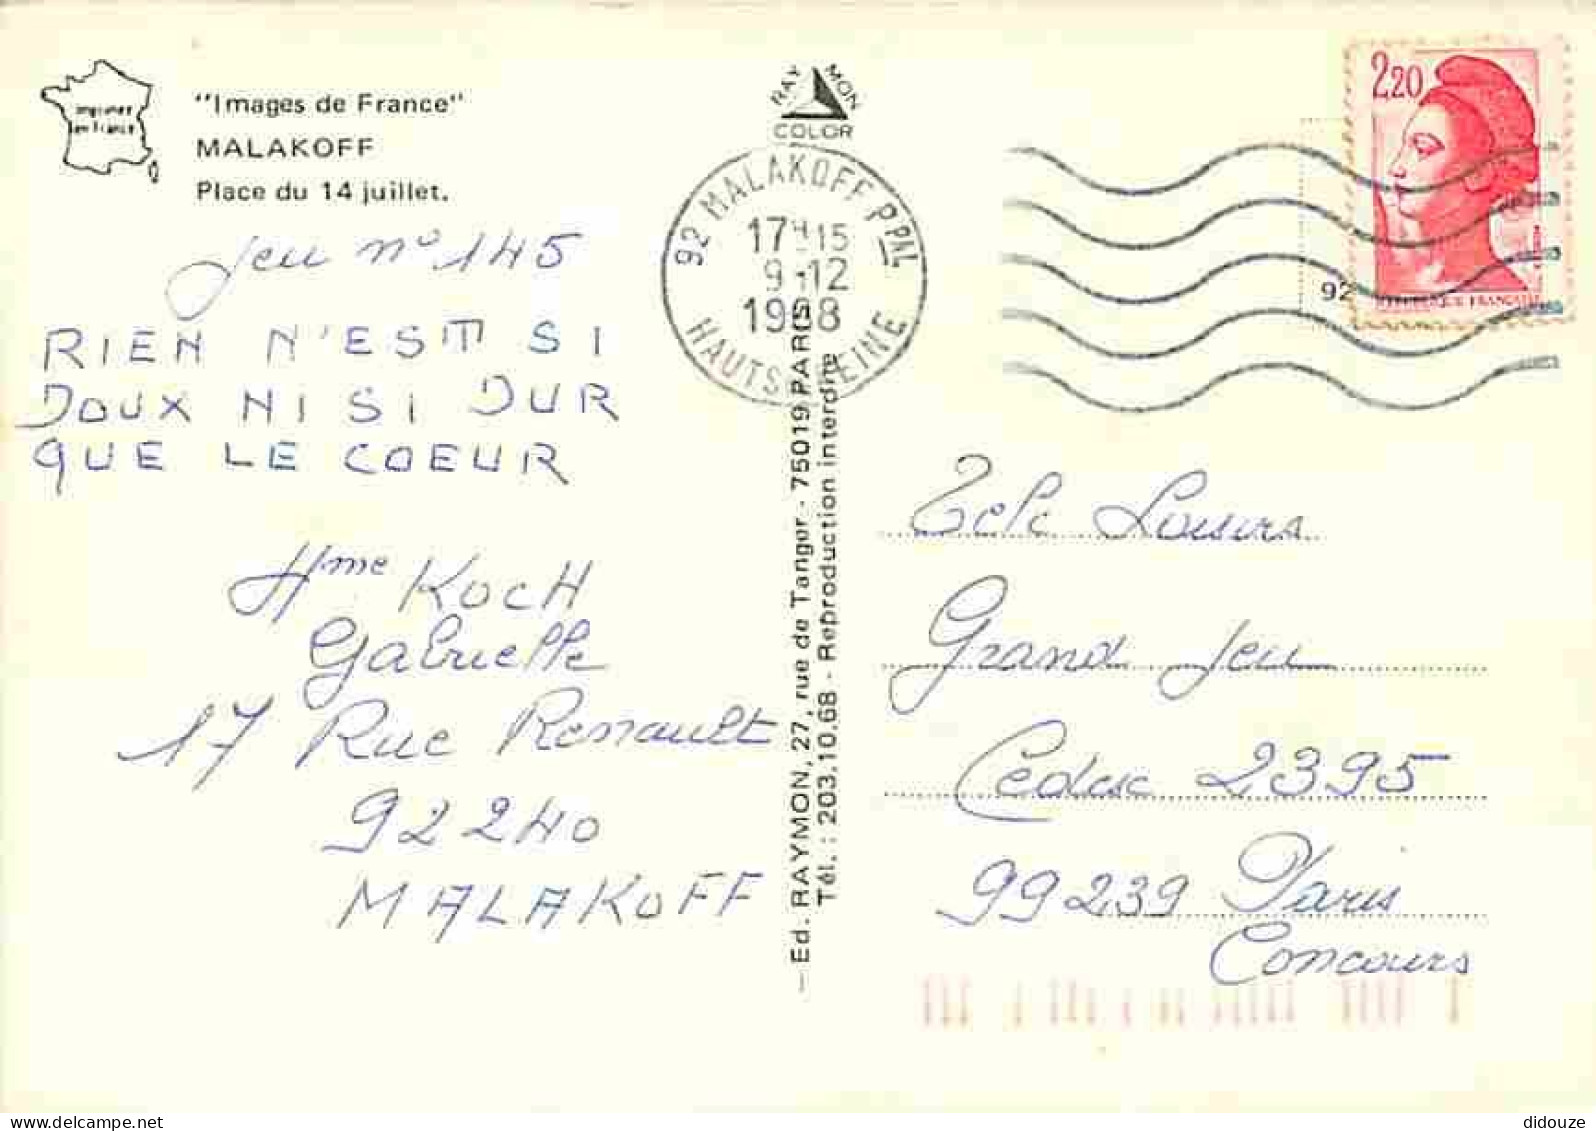 imprimée
en France
"Images de France"
MALAKOFF
Place du 14 juillet.
jeu n° 145
RIEN N'EST SI
DOUX NI SI DUR
QUE LE COEUR
Mme KOCH
Gabrielle
17 Rue Renault
92240
MALAKOFF
RAYMON
COLOR
92 MALAKOFF PPAL
17H15
9-12
1988
HAUTS DE SEINE
Ed. RAYMON, 27, rue de Tanger - 75019 PARIS
Tél. : 203.10.68 - Reproduction interdite
2,20
REPUBLIQUE FRANÇAISE
92
Tele Loisirs
Grand Jeu
Cédex 2395
99239 Paris
Concours
delcampe.net
didouze